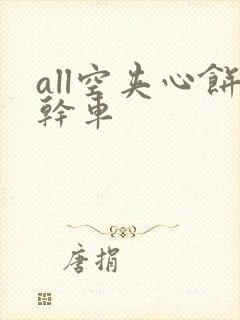 all空夹心餅
幹車
唐捐